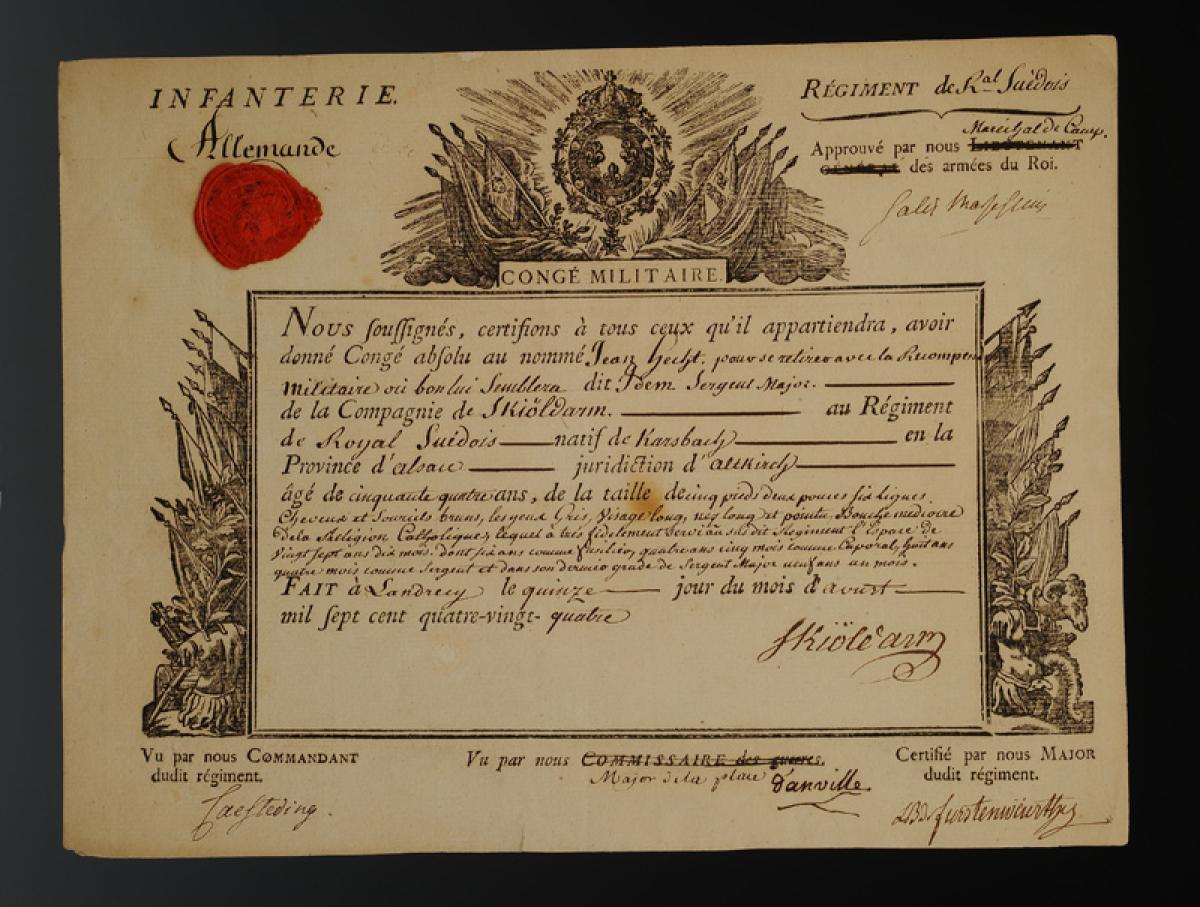 INFANTERIE.
Allemande
RÉGIMENT de R.al Suédois
Maréchal de Camp.
Approuvé par nous LIEUTENANT
GÉNÉRAL des armées du Roi.
Salis
CONGÉ MILITAIRE.
Nous soussignés, certifions à tous ceux qu'il appartiendra, avoir
donné Congé absolu au nommé Jean Hecht. pour se retirer avec la Recompense
militaire où bon lui Semblera dit Idem Sergent Major.
de la Compagnie de Skiöldarm. au Régiment
de Royal Suédois natif de Karsbach en la
Province d'alsace juridiction d'altkirch
âgé de cinquante quatre ans, de la taille de cinq pieds deux pouces six lignes.
Cheveux et Sourcils bruns, les yeux Gris, Visage long, nez long et pointu Bouche mediocre
de la Religion Catholique, lequel à très fidelement Servi au susdit Regiment l'Espace de
Vingt sept ans dix mois. Dont six ans comme fusilier, quatre ans cinq mois comme Caporal, huit ans
quatre mois comme Sergent et dans son dernier grade de Sergent Major neuf ans un mois.
FAIT à Landrecy le quinze jour du mois d'avust
mil sept cent quatre-vingt- quatre
Skiöldarm
Vu par nous COMMANDANT
dudit régiment.
Vu par nous COMMISSAIRE des guerres.
Major de la place d'anville.
Certifié par nous MAJOR
dudit régiment.